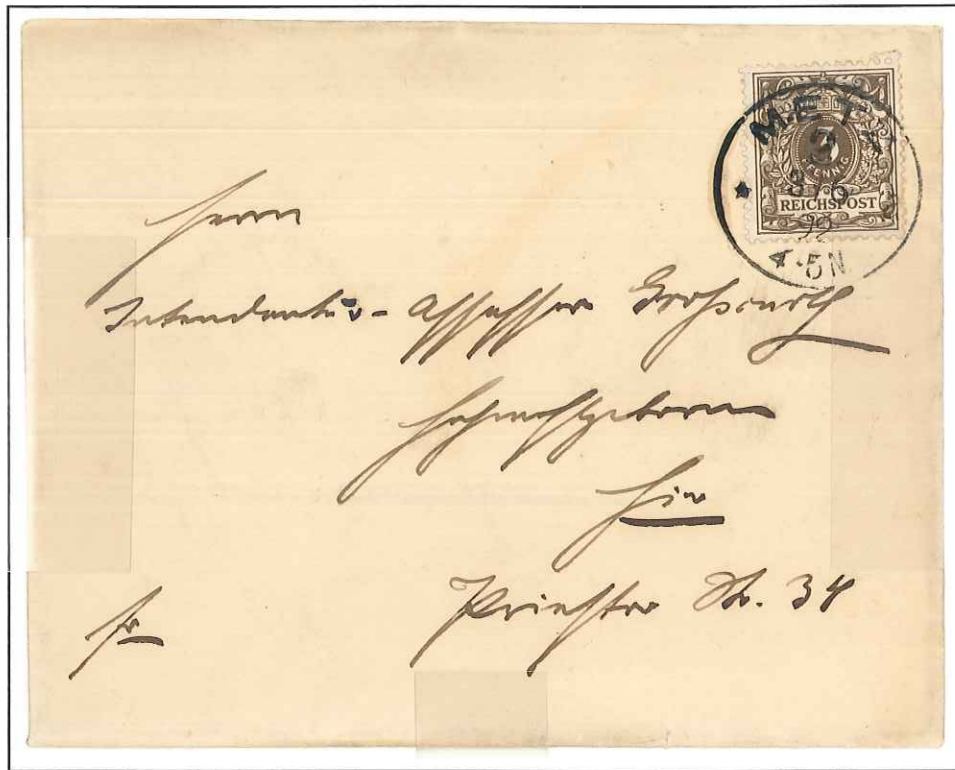 METZ
3
PFENNIG
8/6
92
4-5N
REICHSPOST
Herrn
Intendantur-Assessor
Hochwohlgeboren
Hier
Priester Str. 34
fr